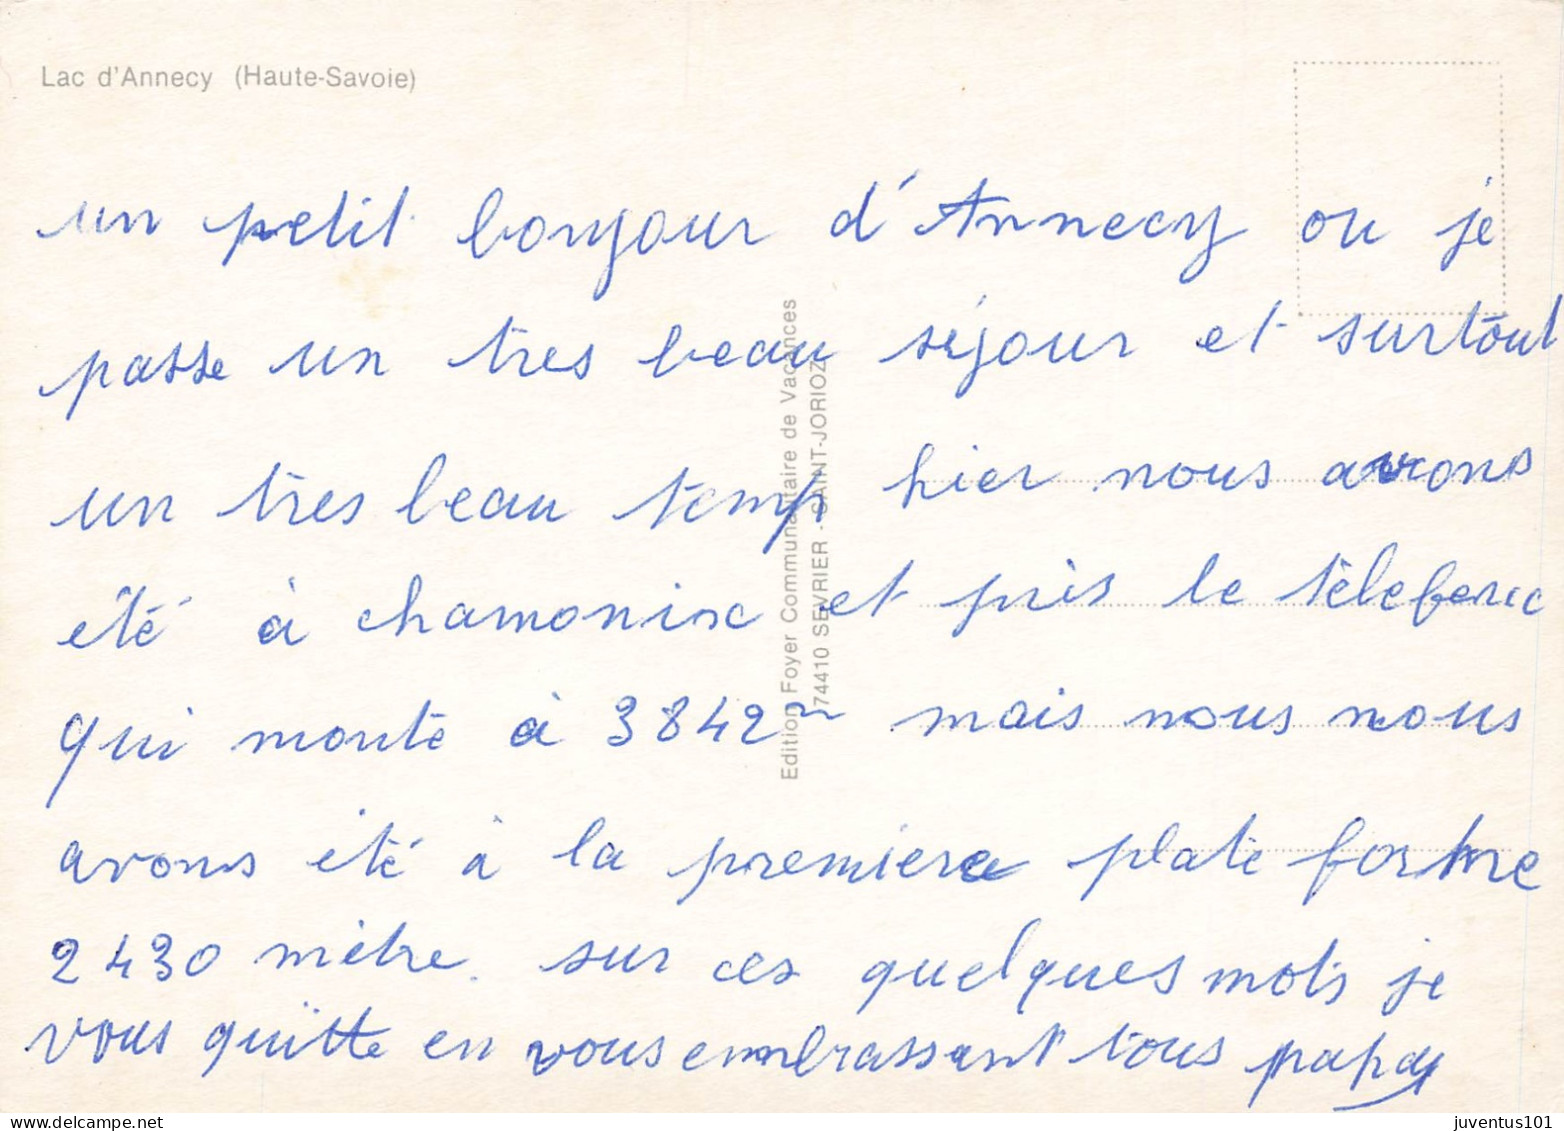 Lac d'Annecy (Haute-Savoie)
un petit bonjour d'Annecy ou je
passe un tres beau séjour et surtout
un tres beau temp hier nous avons
été à chamonix et pris le tèleferic
qui monte à 3842m mais nous nous
avons été à la premiere plate forme
2430 mètre. sur ces quelques mots je
vous quitte en vous embrassant tous papa
Edition Foyer Communautaire de Vacances
74410 SEVRIER - SAINT-JORIOZ
juventus101